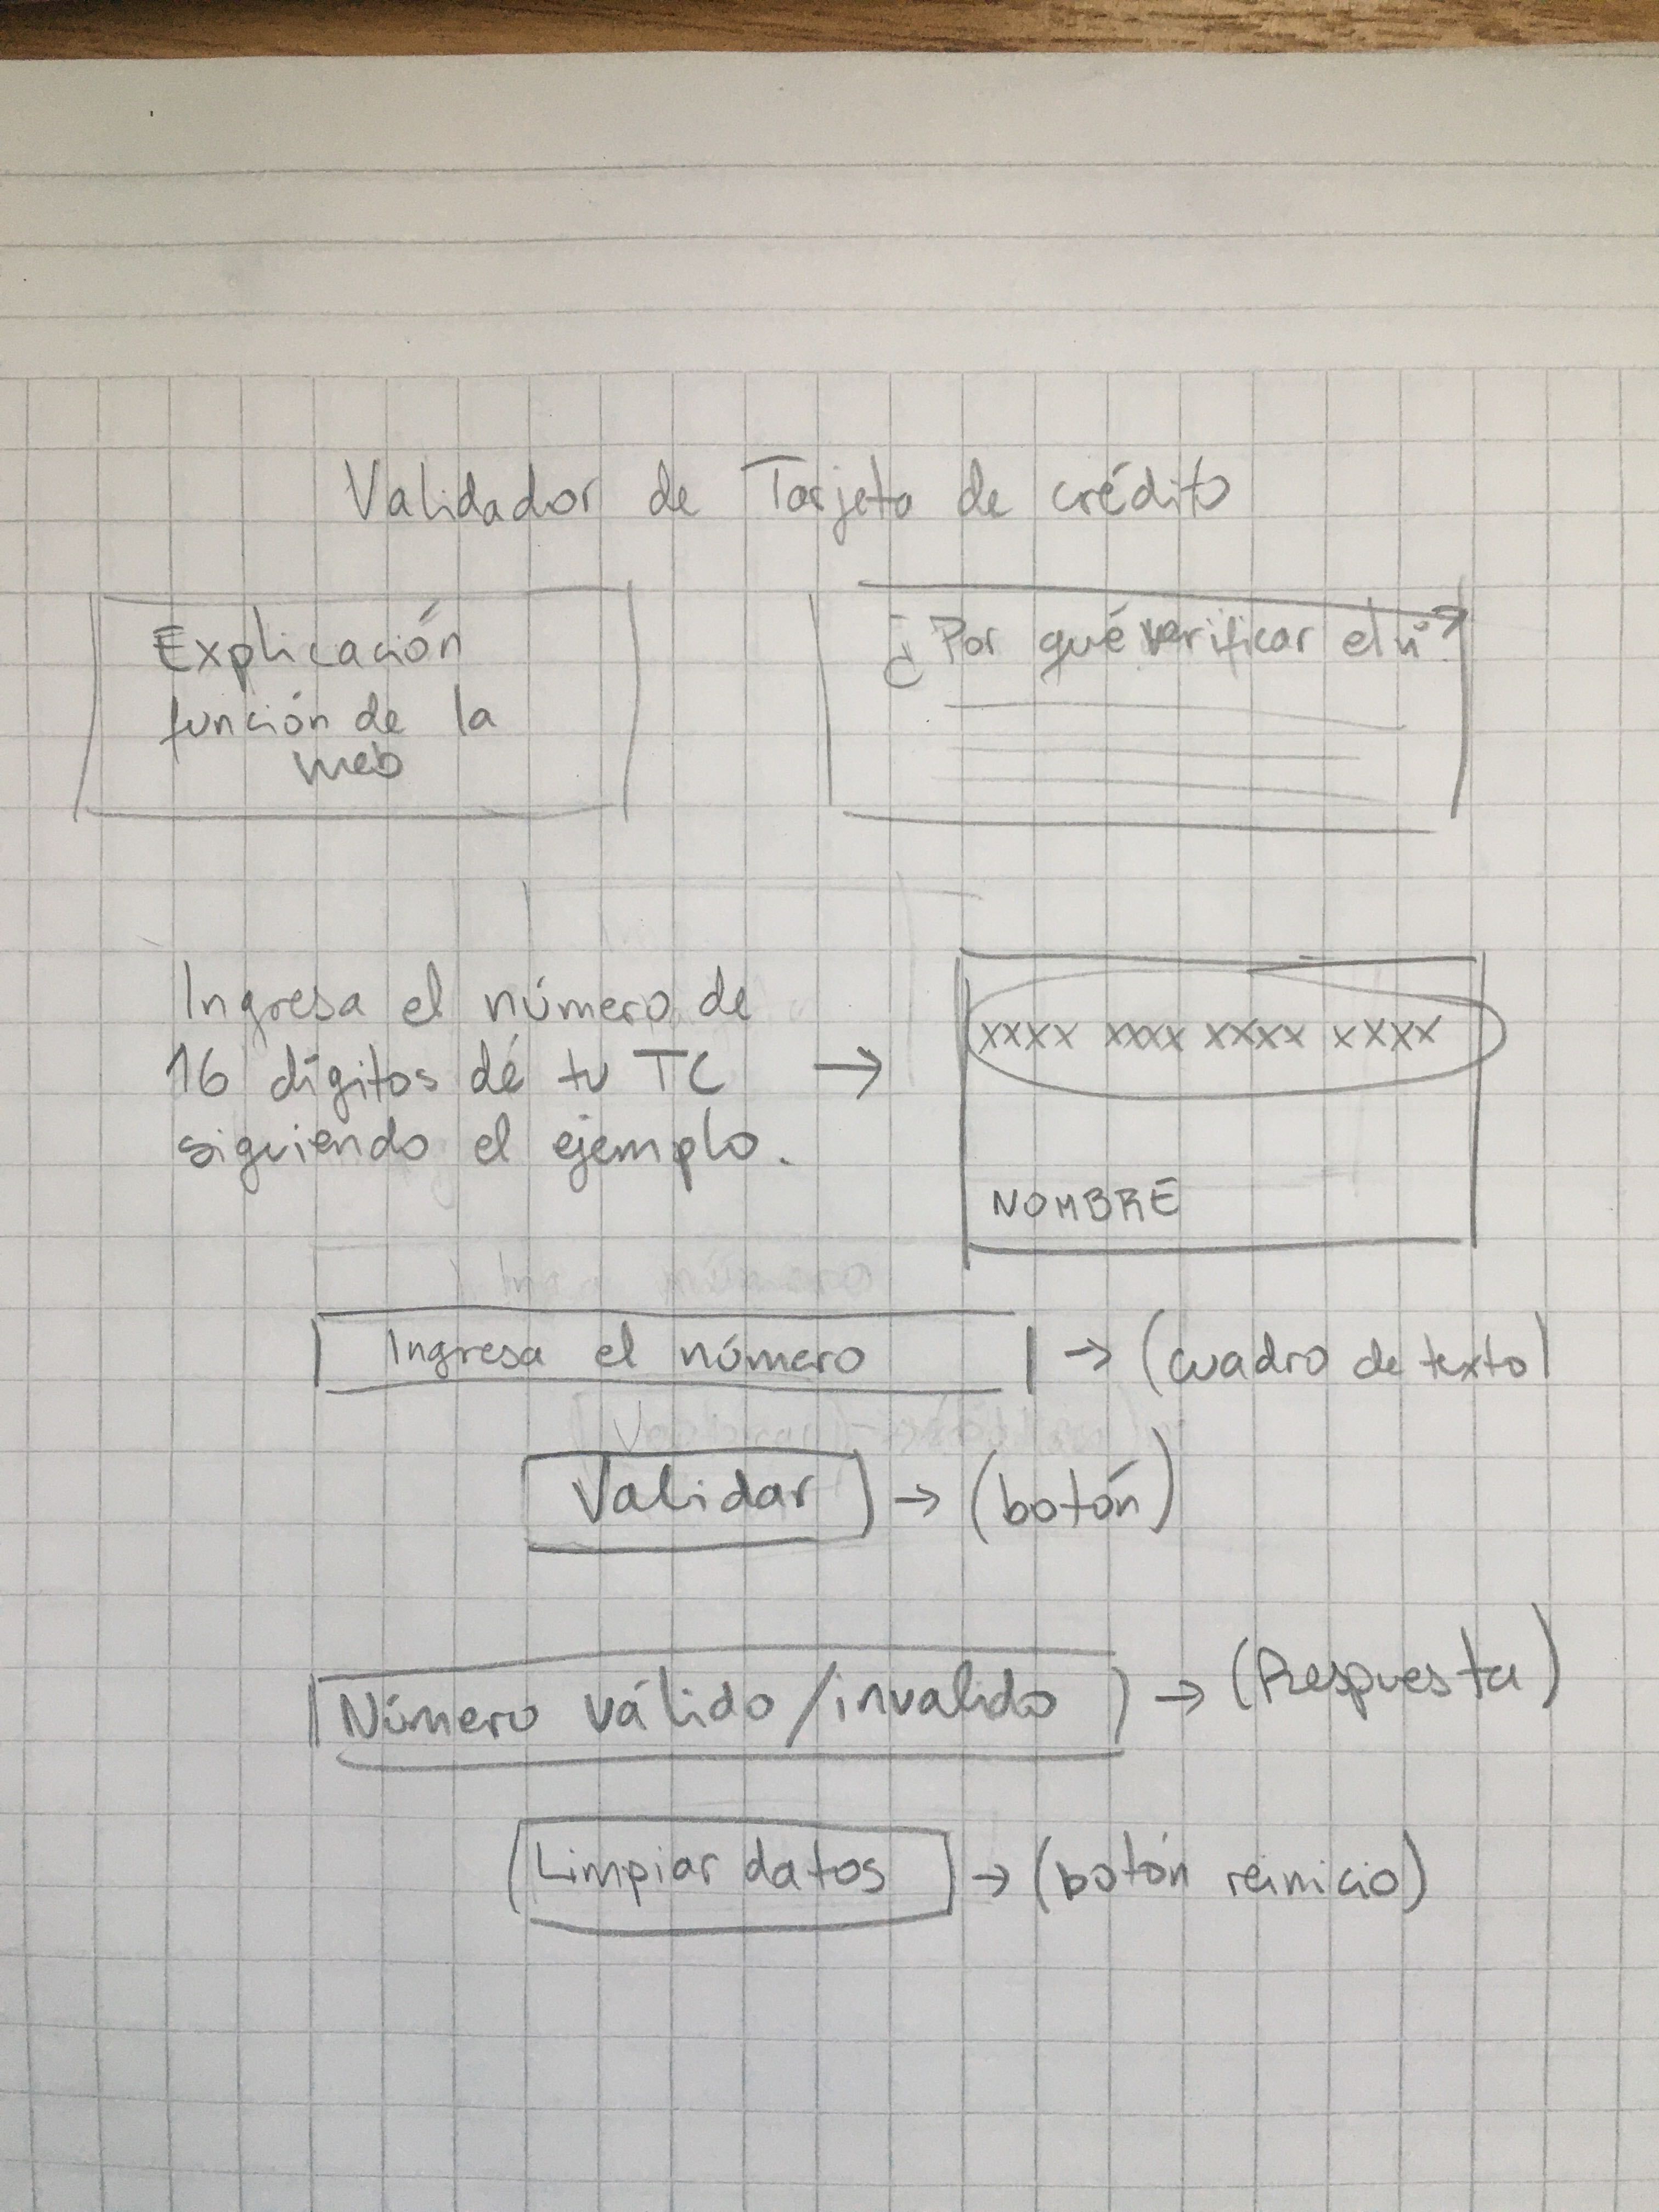 Validador de Tarjeta de crédito
Explicación
función de la
web
¿Por qué verificar el n°?
Ingresa el número de
16 dígitos de tu TC
siguiendo el ejemplo.
→
xxxx xxxx xxxx xxxx
NOMBRE
Ingresa el número → (cuadro de texto)
Validar → (botón)
Número válido/invalido → (Respuesta)
Limpiar datos → (botón reinicio)